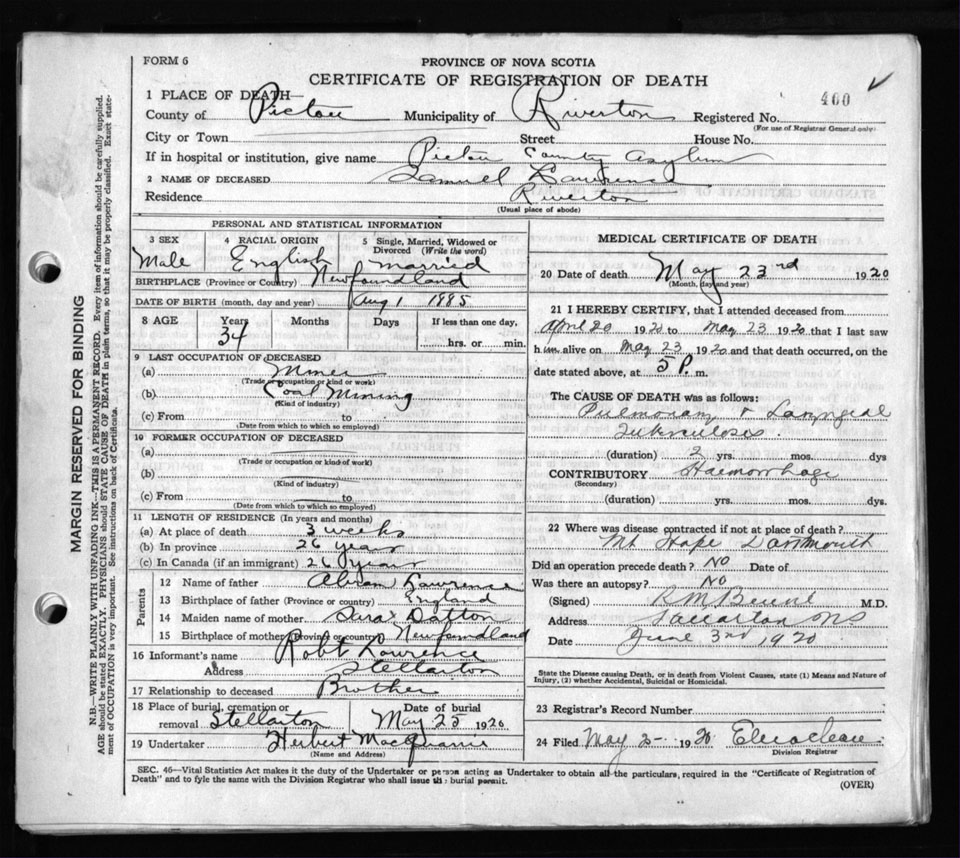 FORM 6
PROVINCE OF NOVA SCOTIA
CERTIFICATE OF REGISTRATION OF DEATH
400
1 PLACE OF DEATH—
County of Pictou Municipality of Riverton Registered No.
(For use of Registrar General only)
City or Town Street House No.
If in hospital or institution, give name Pictou County Asylum
2 NAME OF DECEASED Samuel Lawrence
Residence Riverton
(Usual place of abode)
PERSONAL AND STATISTICAL INFORMATION
3 SEX 4 RACIAL ORIGIN 5 Single, Married, Widowed or Divorced (Write the word)
Male English married
BIRTHPLACE (Province or Country) Newfoundland
DATE OF BIRTH (month, day and year) Aug 1 1885
8 AGE Years Months Days If less than one day,
34 hrs. or min.
9 LAST OCCUPATION OF DECEASED
(a) Miner
(Trade or occupation or kind or work)
(b) Coal Mining
(Kind of industry)
(c) From to
(Date from which to which so employed)
10 FORMER OCCUPATION OF DECEASED
(a)
(Trade or occupation or kind of work)
(b)
(Kind of industry)
(c) From to
(Date from which to which so employed)
11 LENGTH OF RESIDENCE (In years and months)
(a) At place of death 3 weeks
(b) In province 26 years
(c) In Canada (if an immigrant) 26 years
Parents
12 Name of father Lawrence
13 Birthplace of father (Province or country) England
14 Maiden name of mother Sara
15 Birthplace of mother (Province or country) Newfoundland
16 Informant's name Robt Lawrence
Address Stellarton
17 Relationship to deceased Brother
18 Place of burial, cremation or removal Stellarton Date of burial May 25 1920
19 Undertaker Herbert MacQuarrie
(Name and Address)
MEDICAL CERTIFICATE OF DEATH
20 Date of death May 23rd 1920
(Month, day and year)
21 I HEREBY CERTIFY, that I attended deceased from
April 20 1920 to May 23 1920 that I last saw
him alive on May 23 1920 and that death occurred, on the
date stated above, at 5 P. m.
The CAUSE OF DEATH was as follows:
Pulmonary & Laryngeal
Tuberculosis.
(duration) 2 yrs. mos. dys
CONTRIBUTORY Haemorrhage
(Secondary)
(duration) yrs. mos. dys.
22 Where was disease contracted if not at place of death?
Mt Hope Dartmouth
Did an operation precede death? NO Date of
Was there an autopsy? NO
(Signed) M.D.
Address NS
Date June 3rd 1920
State the Disease causing Death, or in death from Violent Causes, state (1) Means and Nature of Injury, (2) whether Accidental, Suicidal or Homicidal.
23 Registrar's Record Number
24 Filed May 1920
Division Registrar
SEC. 46—Vital Statistics Act makes it the duty of the Undertaker or person acting as Undertaker to obtain all the particulars, required in the "Certificate of Registration of
Death" and to fyle the same with the Division Registrar who shall issue the burial permit.
(OVER)
MARGIN RESERVED FOR BINDING
N.B.—WRITE PLAINLY WITH UNFADING INK—THIS IS A PERMANENT RECORD. Every item of information should be carefully supplied.
AGE should be stated EXACTLY. PHYSICIANS should STATE CAUSE OF DEATH in plain terms, so that it may be properly classified. Exact state-
ment of OCCUPATION is very important. See instructions on back of Certificate.